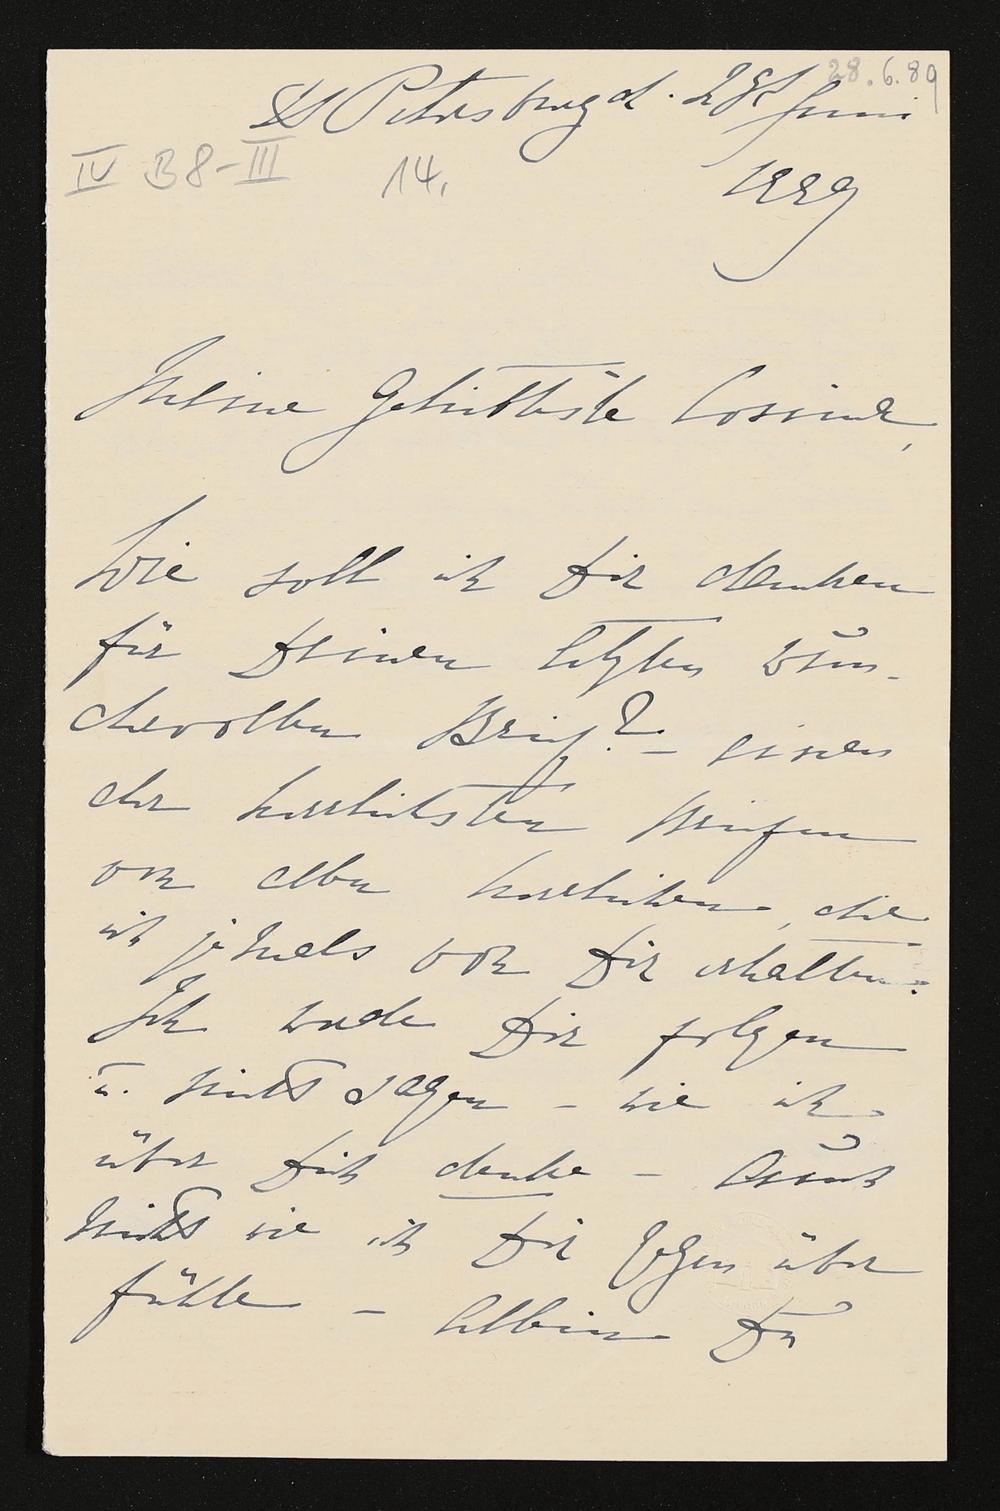 28.6.89
St Petersburg d. 28t Juni
IV B8-III 14.
1889
Meine Geliebteste Cosima,
Wie soll ich Dir danken
für Deinen letzten wun-
dervollen Brief? – einen
der herrlichsten Briefen
von allen herrlichen, die
ich jemals von Dir erhalten.
Ich werde Dir folgen
u. nichts sagen – wie ich
über Dich denke – Auch
nichts wie ich Dir gegenüber
fühle – Allein Du